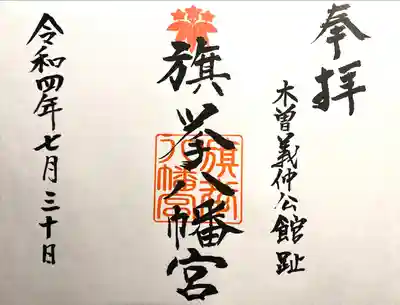 奉拝
木曽義仲公館趾
旗挙八幡宮
令和四年七月三十日